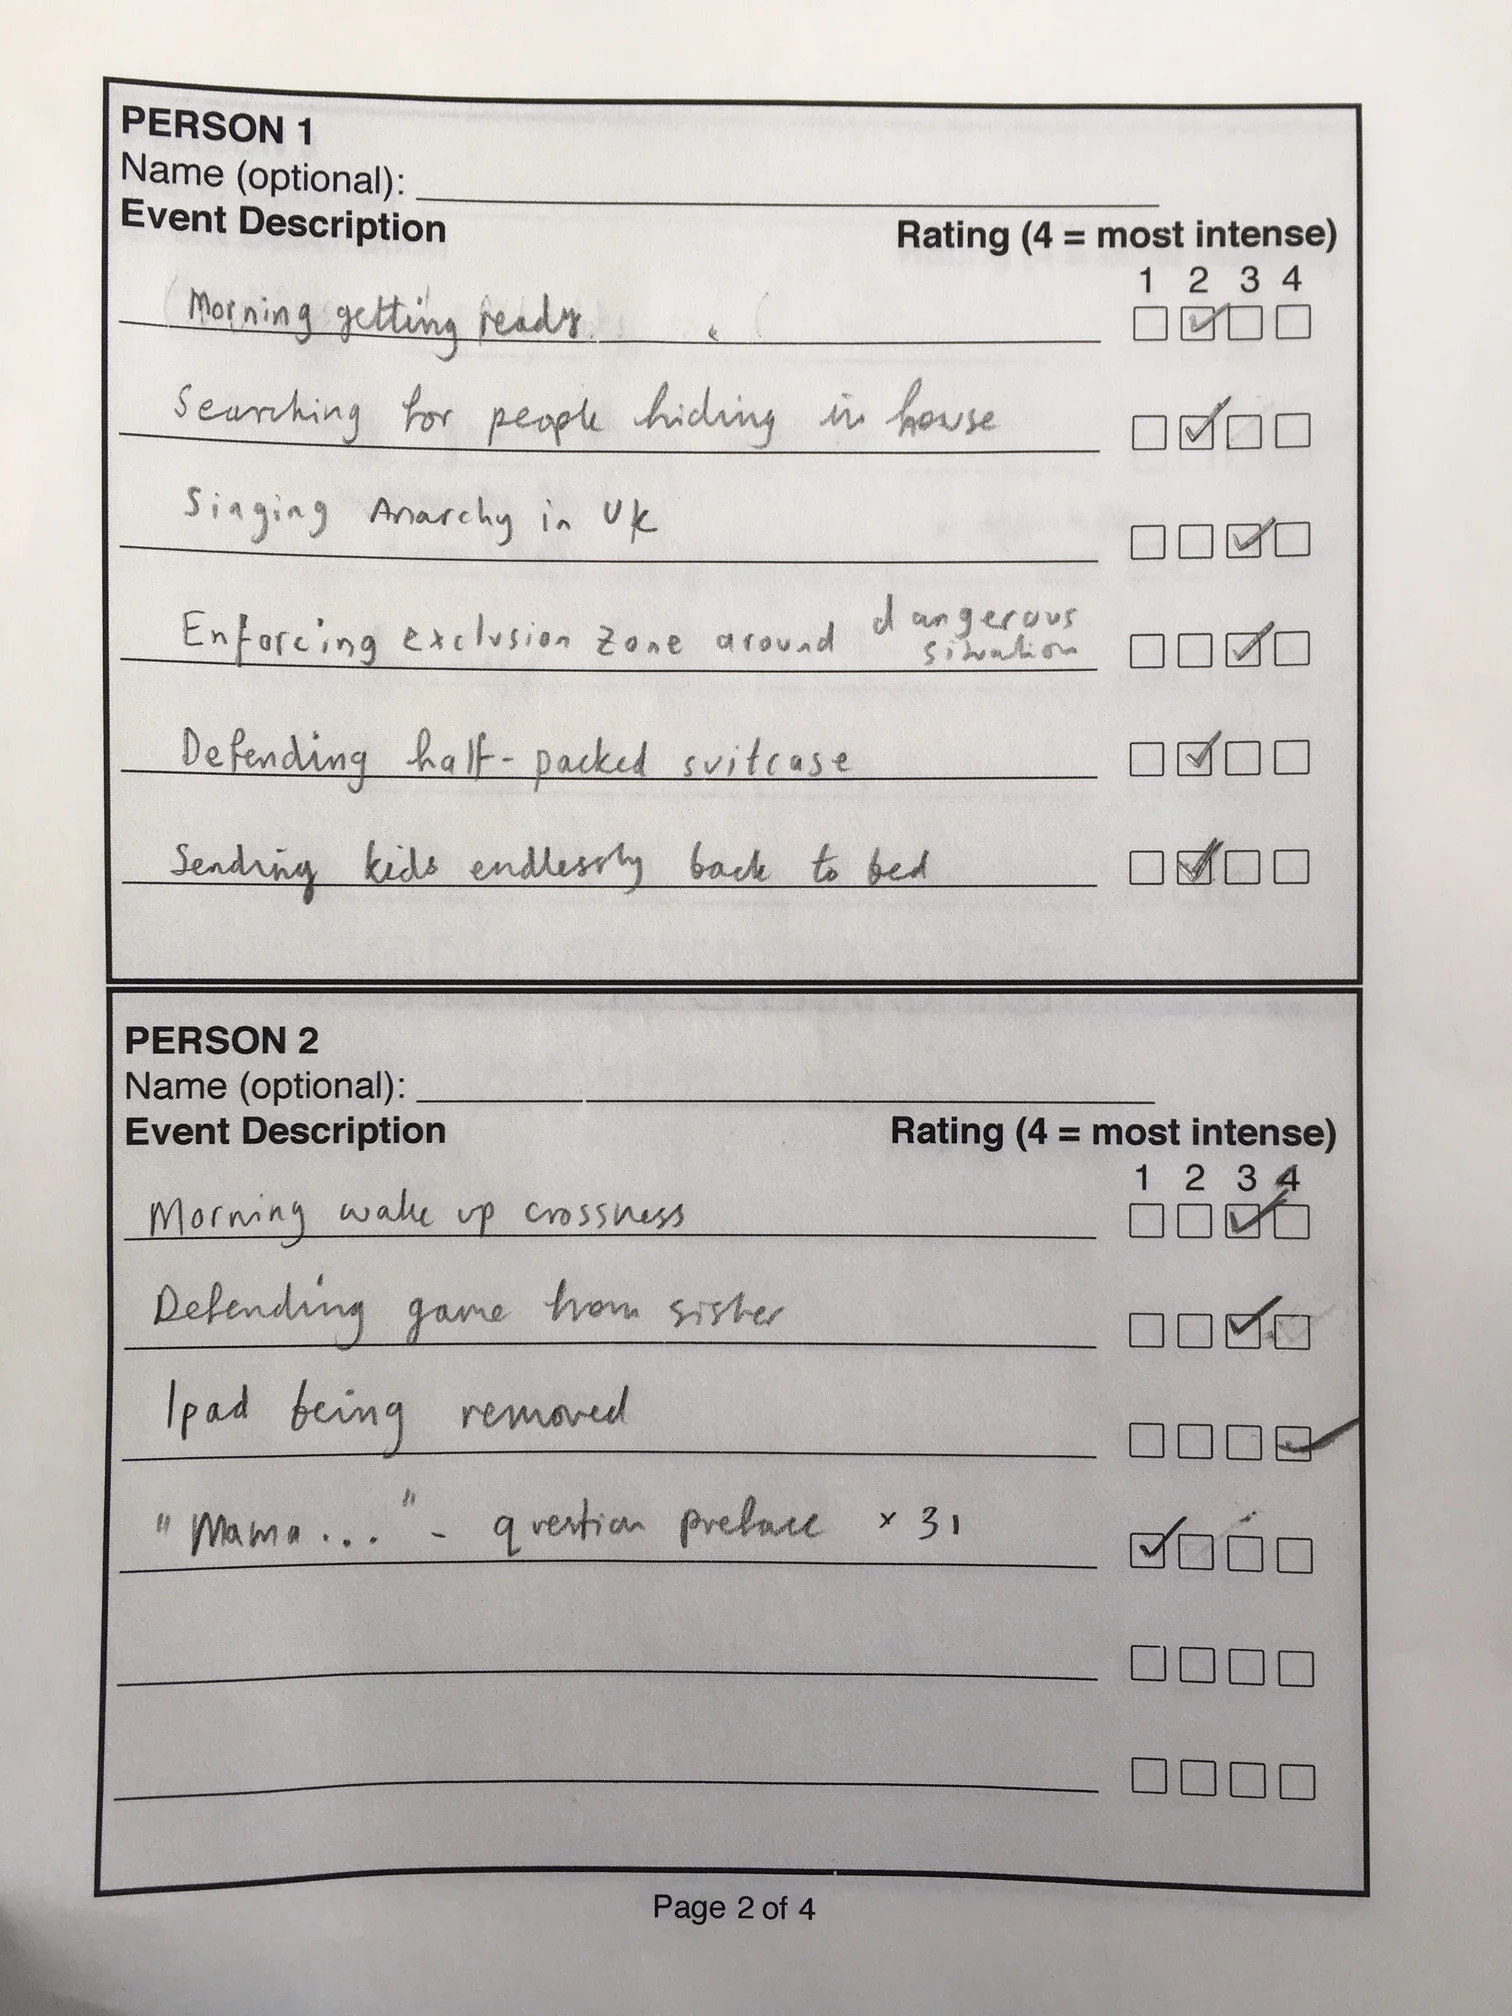 PERSON 1
Name (optional):
Event Description Rating (4 = most intense)
1 2 3 4
Morning getting ready.
Searching for people hiding in house
Singing Anarchy in UK
Enforcing exclusion zone around dangerous
situation
Defending half-packed suitcase
Sending kids endlessly back to bed
PERSON 2
Name (optional):
Event Description Rating (4 = most intense)
1 2 3 4
Morning wake up crossness
Defending game from sister
Ipad being removed
"Mama..." - question preface x 31
Page 2 of 4